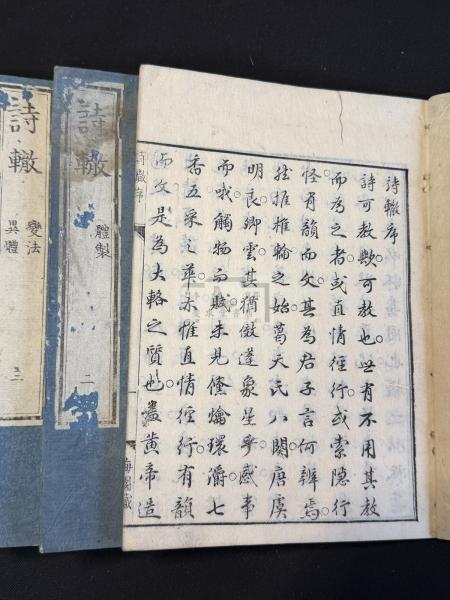 詩轍序
詩可教歟可教也世有不用其教
而為之者或直情徑行或索隱行
怪有韻而文其為君子言何辨焉
推椎輪之始葛天氏八闋唐虞
明良卿雲其猶倣蓬象星乎感事
而哦觸物而賦未見爚環七
香五采之華亦惟直情徑行有韻
而文是為大輅之質也盖黄帝造
詩轍序
梅園藏
詩轍
體製
二
詩轍
變法
異體
三